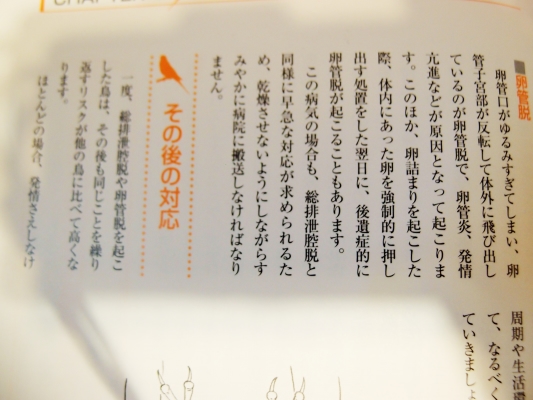 CHAPTER
■卵管脱
卵管口がゆるみすぎてしまい、卵
管子宮部が反転して体外に飛び出し
ているのが卵管脱で、卵管炎、発情
亢進などが原因となって起こりま
す。このほか、卵詰まりを起こした
際、体内にあった卵を強制的に押し
出す処置をした翌日に、後遺症的に
卵管脱が起こることもあります。
この病気の場合も、総排泄腔脱と
同様に早急な対応が求められるた
め、乾燥させないようにしながらす
みやかに病院に搬送しなければなり
ません。
その後の対応
一度、総排泄腔脱や卵管脱を起こ
した鳥は、その後も同じことを繰り
返すリスクが他の鳥に比べて高くな
ります。
ほとんどの場合、発情さえしなけ
周期や生活環
て、なるべく
ていきましょ